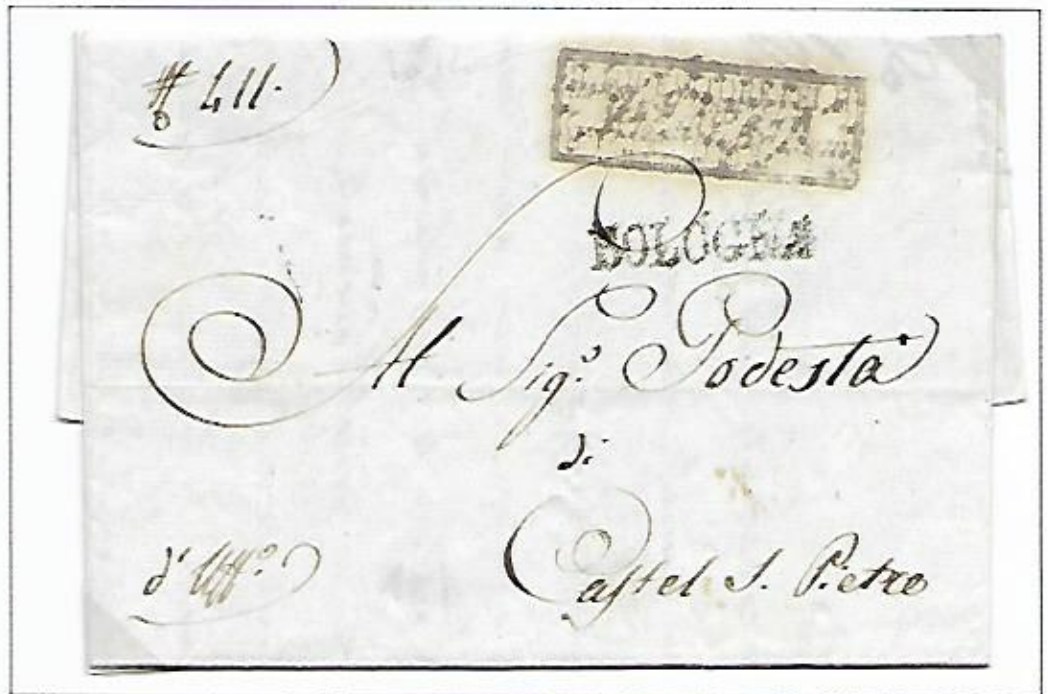 # 411.
BOLOGNA
Al Sig.º Podestà
di
Castel S. Pietro
d' Uffº.